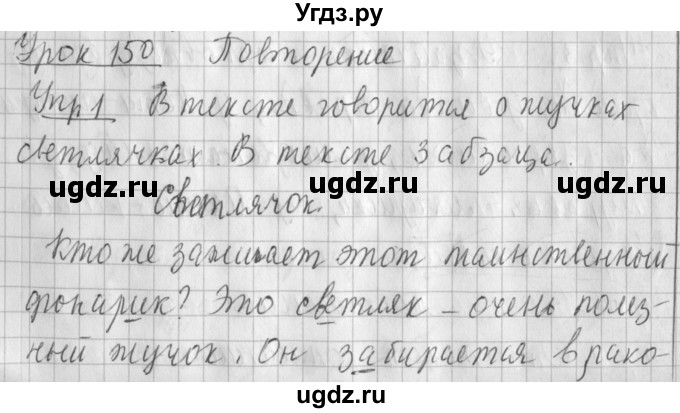 Угдз.ру
Урок 150 Повторение
Упр 1 В тексте говорится о жучках
светлячках. В тексте 3 абзаца.
ugdz.ru ugdz.ru ugdz.ru
Светлячок.
Кто же зажигает этот таинственный
фонарик? Это светляк – очень полез-
ный жучок. Он забирается в рако-
ugdz.ru ugdz.ru
ugdz.ru